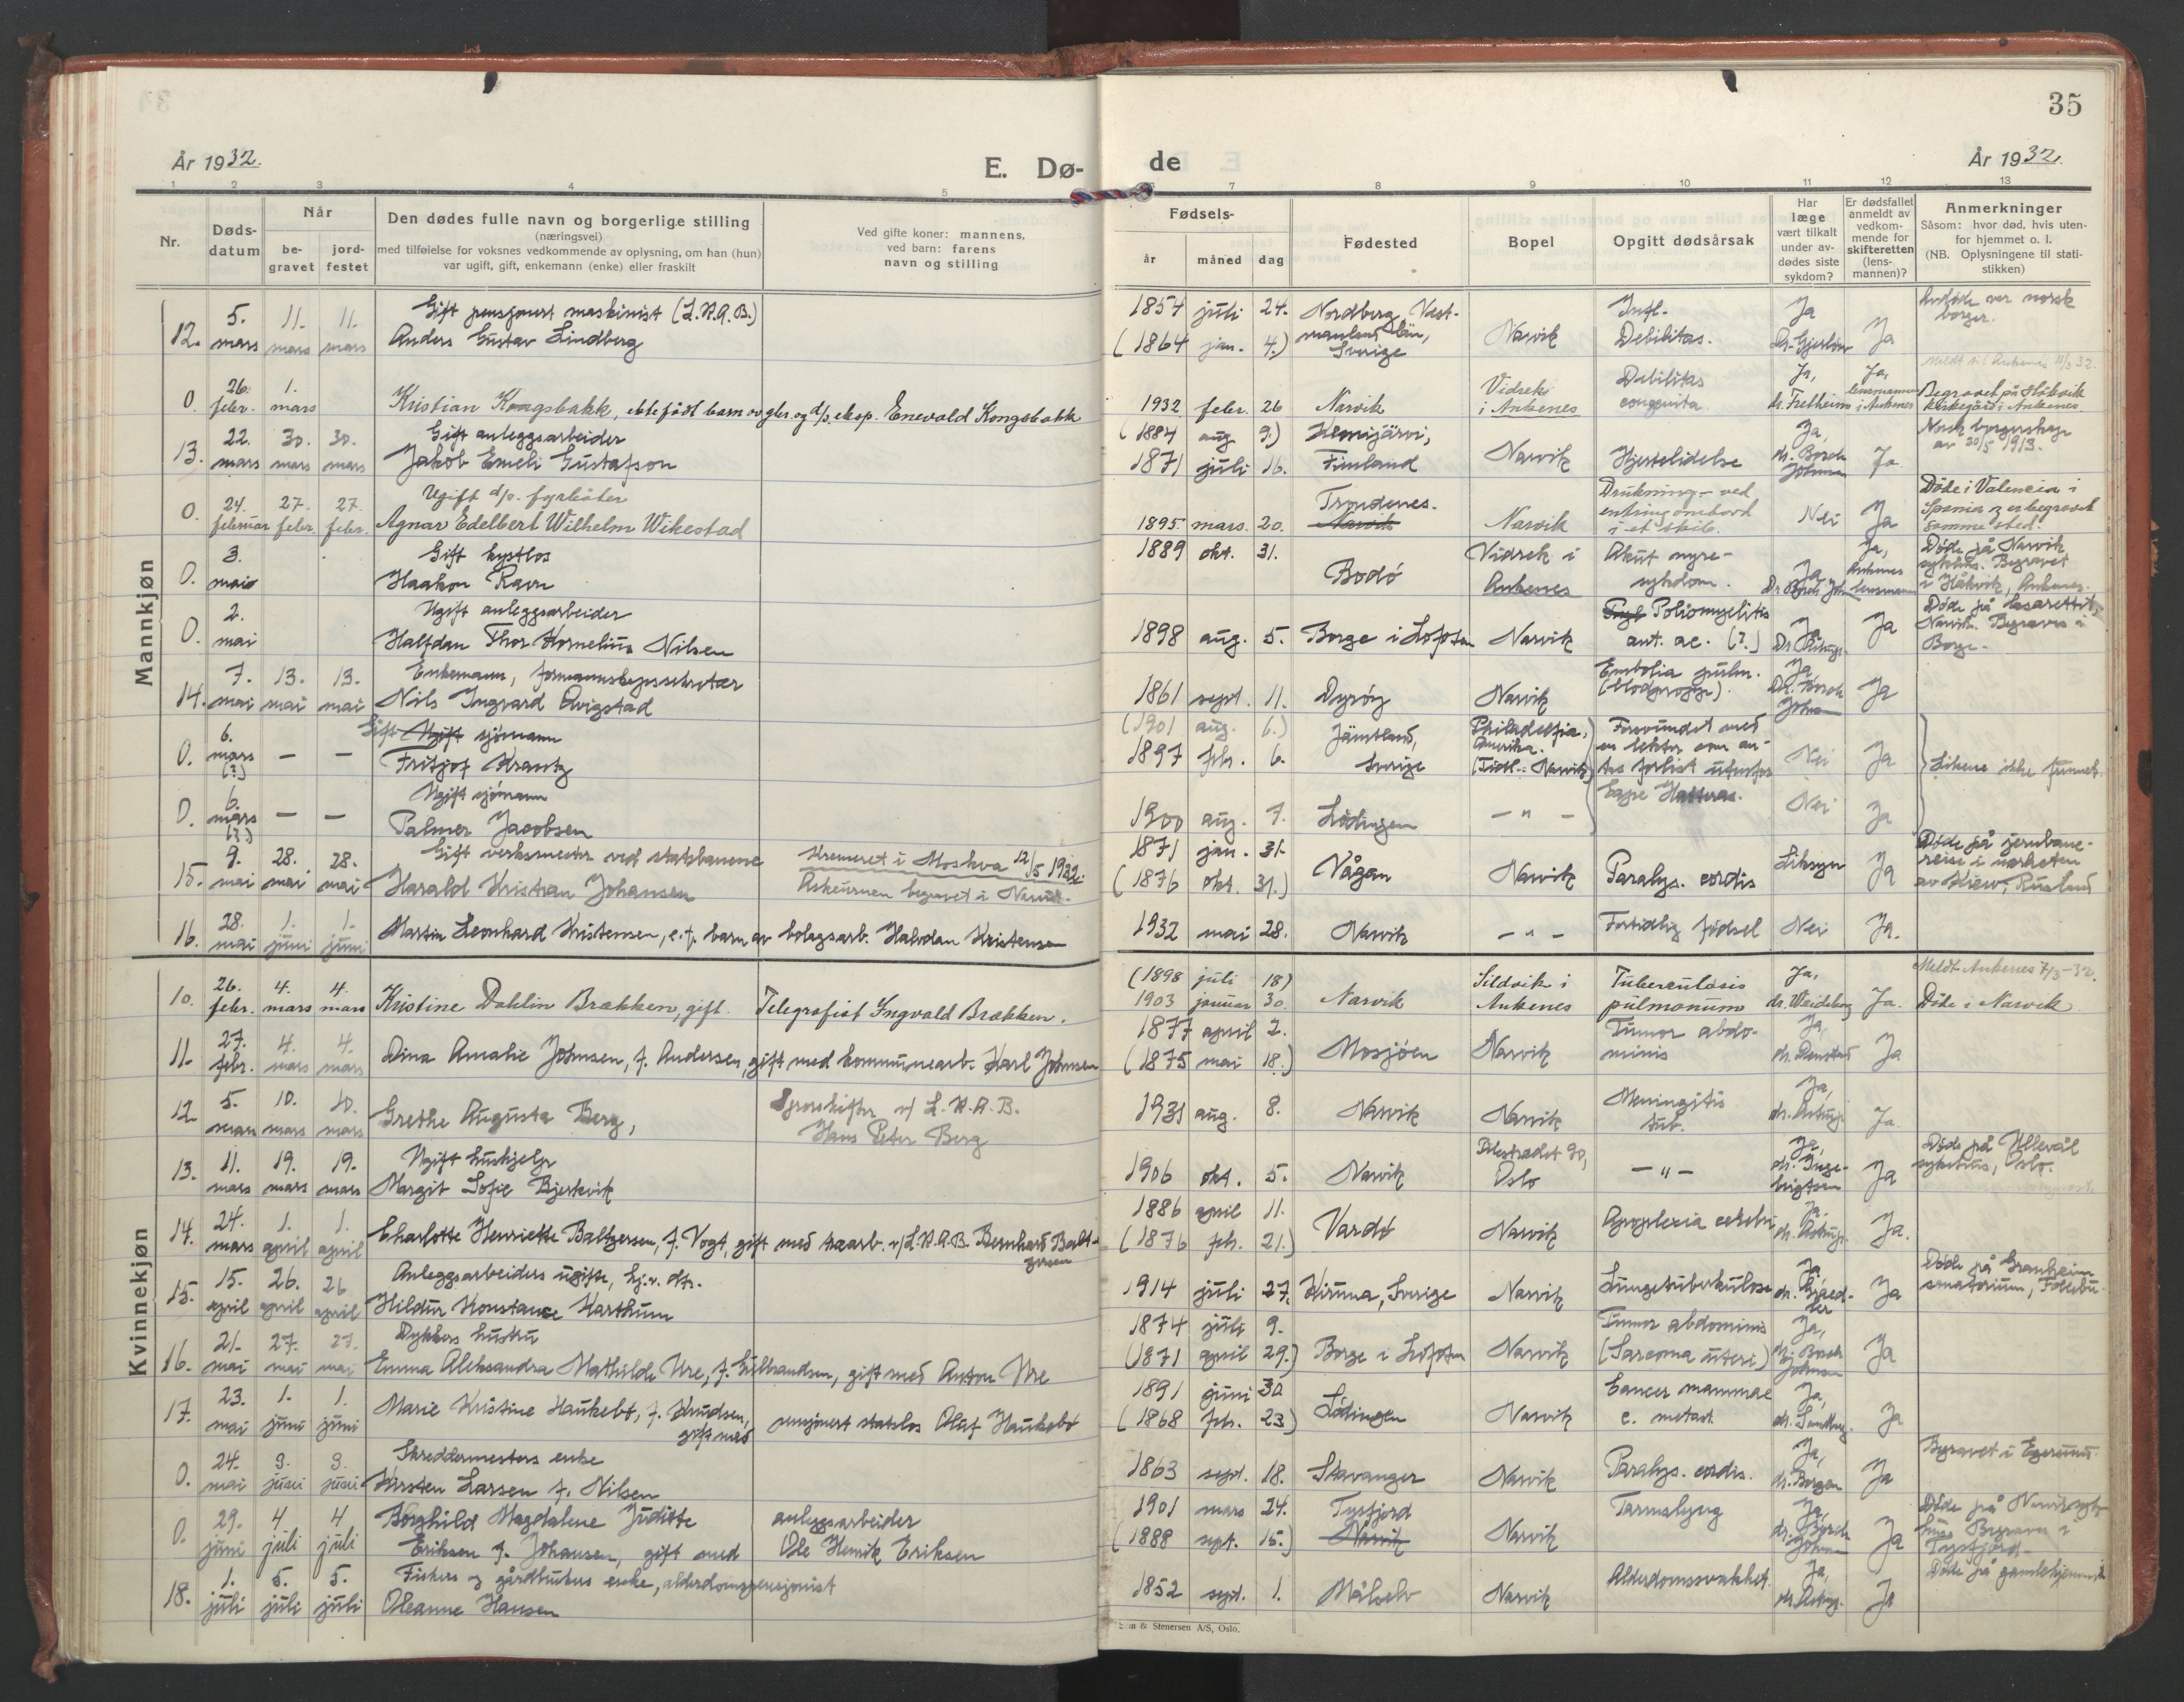 35
År 1932.
E. Dø-
de
År 1932.
1 2 3 4 5
6 7 8 9 10 11 12 13
Nr.
Døds-
datum
Når
be-
gravet
jord-
festet
Den dødes fulle navn og borgerlige stilling
(næringsvei)
med tilføielse for voksnes vedkommende av oplysning, om han (hun)
var ugift, gift, enkemann (enke) eller fraskilt
Ved gifte koner: mannens,
ved barn: farens
navn og stilling
Fødsels-
år måned dag
Fødested
Bopel
Opgitt dødsårsak
Har
læge
vært tilkalt
under av-
dødes siste
sykdom?
Er dødsfallet
anmeldt av
vedkom-
mende for
skifteretten
(lens-
mannen)?
Anmerkninger
Såsom: hvor død, hvis uten-
for hjemmet o. l.
(NB. Oplysningene til stati-
stikken)
Mannkjøn
5. 11. 11. Gift pensjonert maskinist (L.K.A.B.) 1854 juli 24. Nordberg, Vest- Ja
12. mars mars mars Anders Gustav Lindberg (1864 jan. 4.) manland Län, Narvik Debilitas. Ja
Sverige
Avdøde var norsk
borger.
26. 1. Debilitas Ja, Ja,
0. febr. mars Kristian Kongsbakk, ektefødt barn av gbr. og d/s. eksp. Enevald Kongsbakk 1932 febr. 26 Narvik Vidrek i Ankenes congenita dr. Fretheim lensmannen i Ankenes
Begravet på Håkvik
kirkegård i Ankenes
22. 30. 30. Gift anleggsarbeider (1884 aug 9.) Kemijärvi, Ja,
13. mars mars mars Jakob Emeli Gustafson 1871 juli 16. Finland Narvik Hjertelidelse dr. Borch Johnsen Ja
Norsk borgerskap
av 20/5 1913.
24. 27. 27. Ugift d/s. fyrbøter Trondenes. Drukning ved
0. februar febr. febr. Agnar Edelbert Wilhelm Wikestad 1895 mars. 20. Narvik Narvik entring ombord i et skib. Nei Ja
Døde i Valencia i
Spania og er begravet
samme sted.
3. Gift kystlos 1889 okt. 31. Vidrek i Akut nyre- Ja,
0. Haakon Ravn Bodö Ankenes sykdom. Ja Ankenes lensmann
Døde på Narvik
sykehus. Begravet
i Håkvik, Ankenes.
2. Ugift anleggsarbeider Poliomyelitis
0. mai Halfdan Thor Kornelius Nilsen 1898 aug. 5. Borge i Lofoten Narvik ant. ac. (?) Ja Ja
Døde på lasarettet,
Narvik. Begraves i
Borge.
7. 13. 13. Enkemann, formannskapssekretær Ja,
14. mai mai mai Nils Ingvard Qvigstad 1861 sept. 11. Dyröy Narvik (blodpropp). Dr. Borch Johnsen Ja
6. Gift Ugift sjömann (1901 aug. 6.) Jämtland, Philadelfia, Forsvundet med
0. mars (?) — — Fritjof Krantz 1897 febr. 6. Sverige Amerika. (Tidl.: Narvik) Nei Ja
Likene ikke funnet.
6. Ugift sjömann Cape Hatteras.
0. mars (?) — — Palmer Jacobsen 1900 aug. 7. Lödingen — " — Nei Ja
9. 28. 28. Gift verksmester ved statsbanene Kremeret i Moskva 12/5 1932. 1871 jan. 31.
15. mai mai mai Harald Kristian Johansen Askeurnen begravet i Narvik. (1876 okt. 31.) Vågan Narvik Paralys. cordis Liksyn Ja
Døde på jernbane-
reise i nærheten
av Kiew, Rusland
28. 1. 1.
16. mai juni juni Martin Leonhard Kristensen, e.f. barn av bolagsarb. Halvdan Kristensen 1932 mai 28. Narvik — " — Fortidlig födsel Nei Ja.
Kvinnekjøn
26. 4. 4. (1898 juli 18) Sildvik i Tuberculosis Ja, Meldt Ankenes 7/3-32.
10. febr. mars mars Kristine Dahlin Brækken, gift. Telegrafist Ingvald Brækken. 1903 januar 30. Narvik Ankenes pulmonum Ja. Døde i Narvik
27. 4. 4. 1877 april 2. Tumor abdo- Ja,
11. febr. mars mars Dina Amalie Johnsen, f. Andersen, gift med kommunearb. Karl Johnsen (1875 mai 18.) Mosjöen Narvik minis Ja
5. 10. 10. Sporskifter v/ L.K.A.B. Meningitis Ja,
12 mars mars mars Grethe Augusta Berg, Hans Peter Berg 1931 aug. 8. Narvik Narvik tub. Ja
11. 19. 19. Ugift hushjelp Pilestredet 90, Ja,
13. mars mars mars Margit Sofie Bjerkvik 1906 okt. 5. Narvik Oslo — " — dr. Ingebrigtsen Ja
Døde på Ullevål
sykehus, Oslo.
24. 1. 1. 1886 april 11. Ja.
14. mars april april Charlotte Henriette Baltzersen, f. Vogt, gift med arb. v/ L.K.A.B. Bernhard Baltzersen (1876 feb. 21.) Vardö Narvik Apoplexia cerebri Ja.
15. 26. 26 Anleggsarbeiders ugifte, hj.v. dtr. Ja,
15. april april april Hildur Konstance Karthum 1914 juli 27. Kiruna, Sverige Narvik Lungetuberkulose Ja
Døde på Granheim
sanatorium, Follebu.
21. 27. 27. Dykkers hustru 1874 juli 9. Tumor abdominis Ja,
16. mai mai mai Emma Aleksandra Mathilde Ure, f. Gulbrandsen, gift med Anton Ure (1871 april 29.) Borge i Lofoten Narvik (Sarcoma uteri) dr. Borch Johnsen Ja
23. 1. 1. 1891 juni 30. Cancer mammae Ja,
17. mai juni juni Marie Kristine Haukebö, f. Knudsen, gift med pensjonert statslos Oluf Haukebö (1868 feb. 23) Lödingen Narvik c. metast. Ja
24. 3. 3. Skreddermesters enke Ja,
0. mai juni juni Kirsten Larsen f. Nilsen 1863 sept. 18. Stavanger Narvik Paralys. cordis. dr. Borgen Ja
Begravet i Egersund.
29. 4 4 Borghild Magdalene Juditte anleggsarbeider 1901 mars 24. Tysfjord Tarmslyng Ja,
0. juni juli juli Eriksen f. Johansen, gift med Ole Henrik Eriksen (1888 sept. 15.) Narvik Narvik dr. Borch Johnsen Ja
Døde på Narvik syke-
hus. Begraves i
Tysfjord.
1. 5. 5. Fiskers og gårdbrukers enke, alderdomspensjonist Alderdomssvakhet. Ja, Døde på gamlehjemmet
18. juli juli juli Oleanne Hansen 1852 sept. 1. Målselv Narvik Ja
& Stenersen A/S, Oslo.